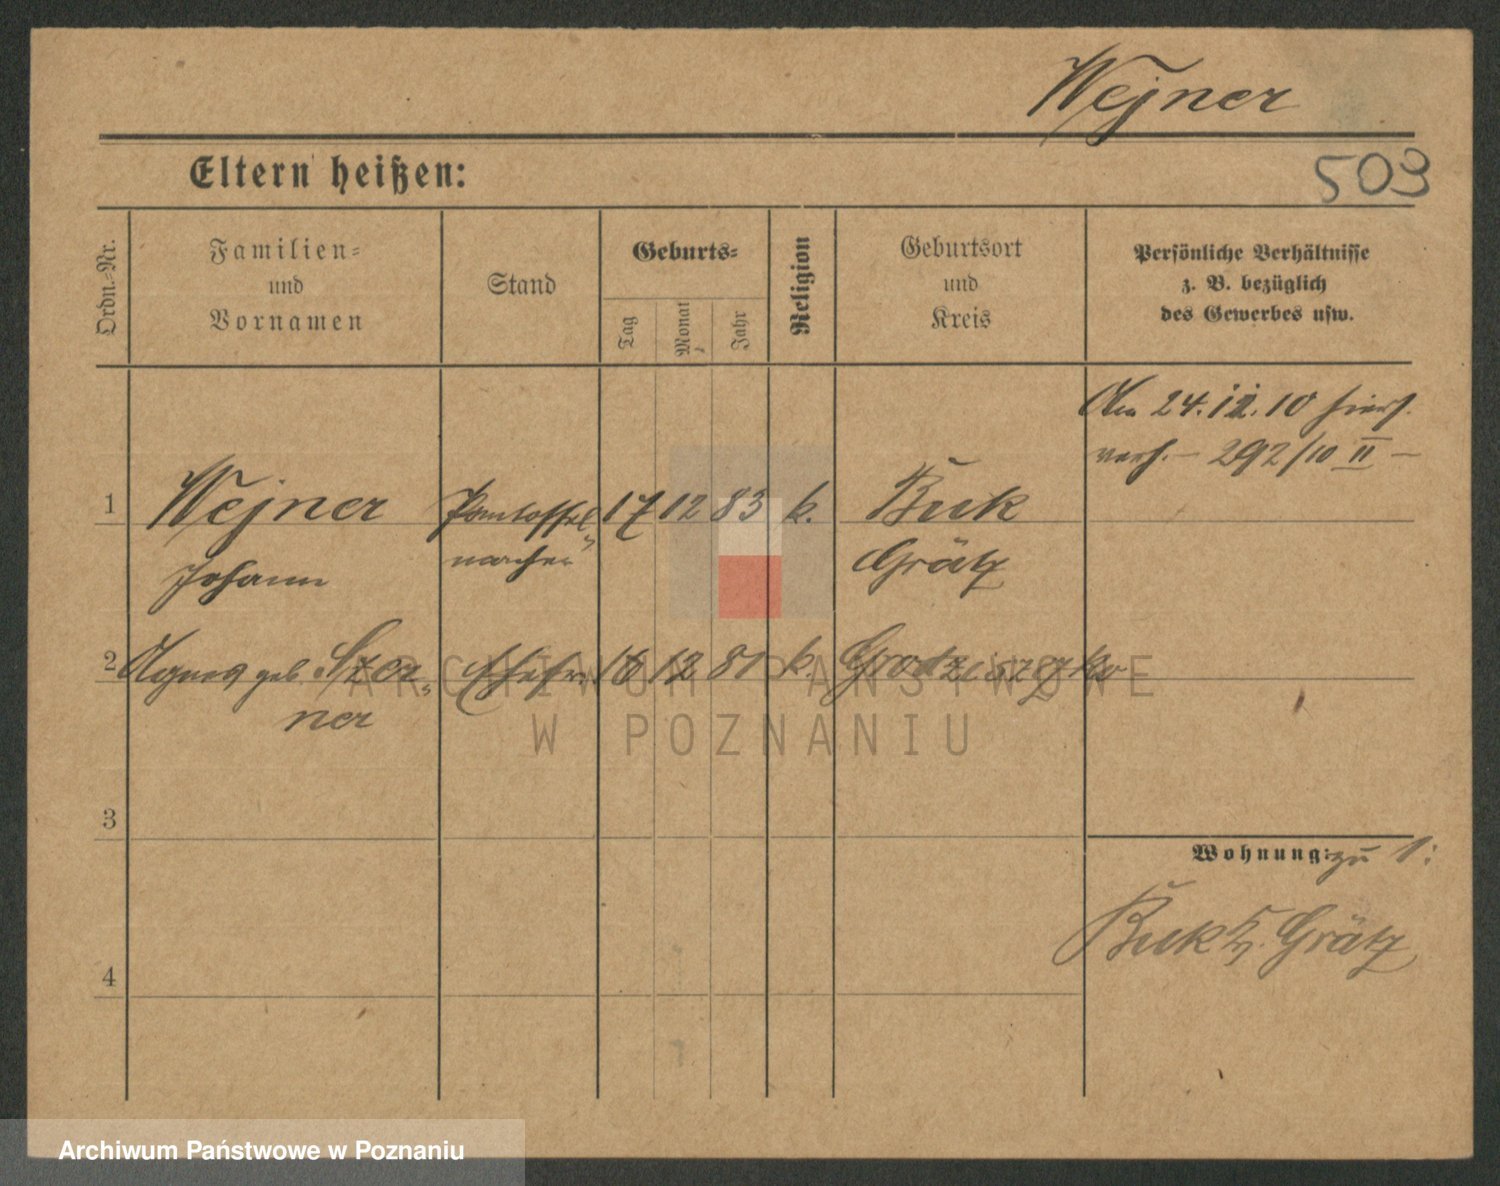 Wejner
Eltern heißen:
503
Ordn.-Nr.
Familien-
und
Vornamen
Stand
Geburts-
Tag
Monat
Jahr
Religion
Geburtsort
und
Kreis
Persönliche Verhältnisse
z. B. bezüglich
des Gewerbes usw.
Am 24.12.10 hiers.
verh. – 292/10 II –
1 Wejner Pantoffel- 17 12 83 k. Buk
Johann macher Grätz
2 Agnes geb. Szer- Ehefr. 16 12 81 k. Grodziszczko
ner
ARCHIWUM PAŃSTWOWE
W POZNANIU
3
Wohnung: zu 1:
Buk Grätz
4
Archiwum Państwowe w Poznaniu